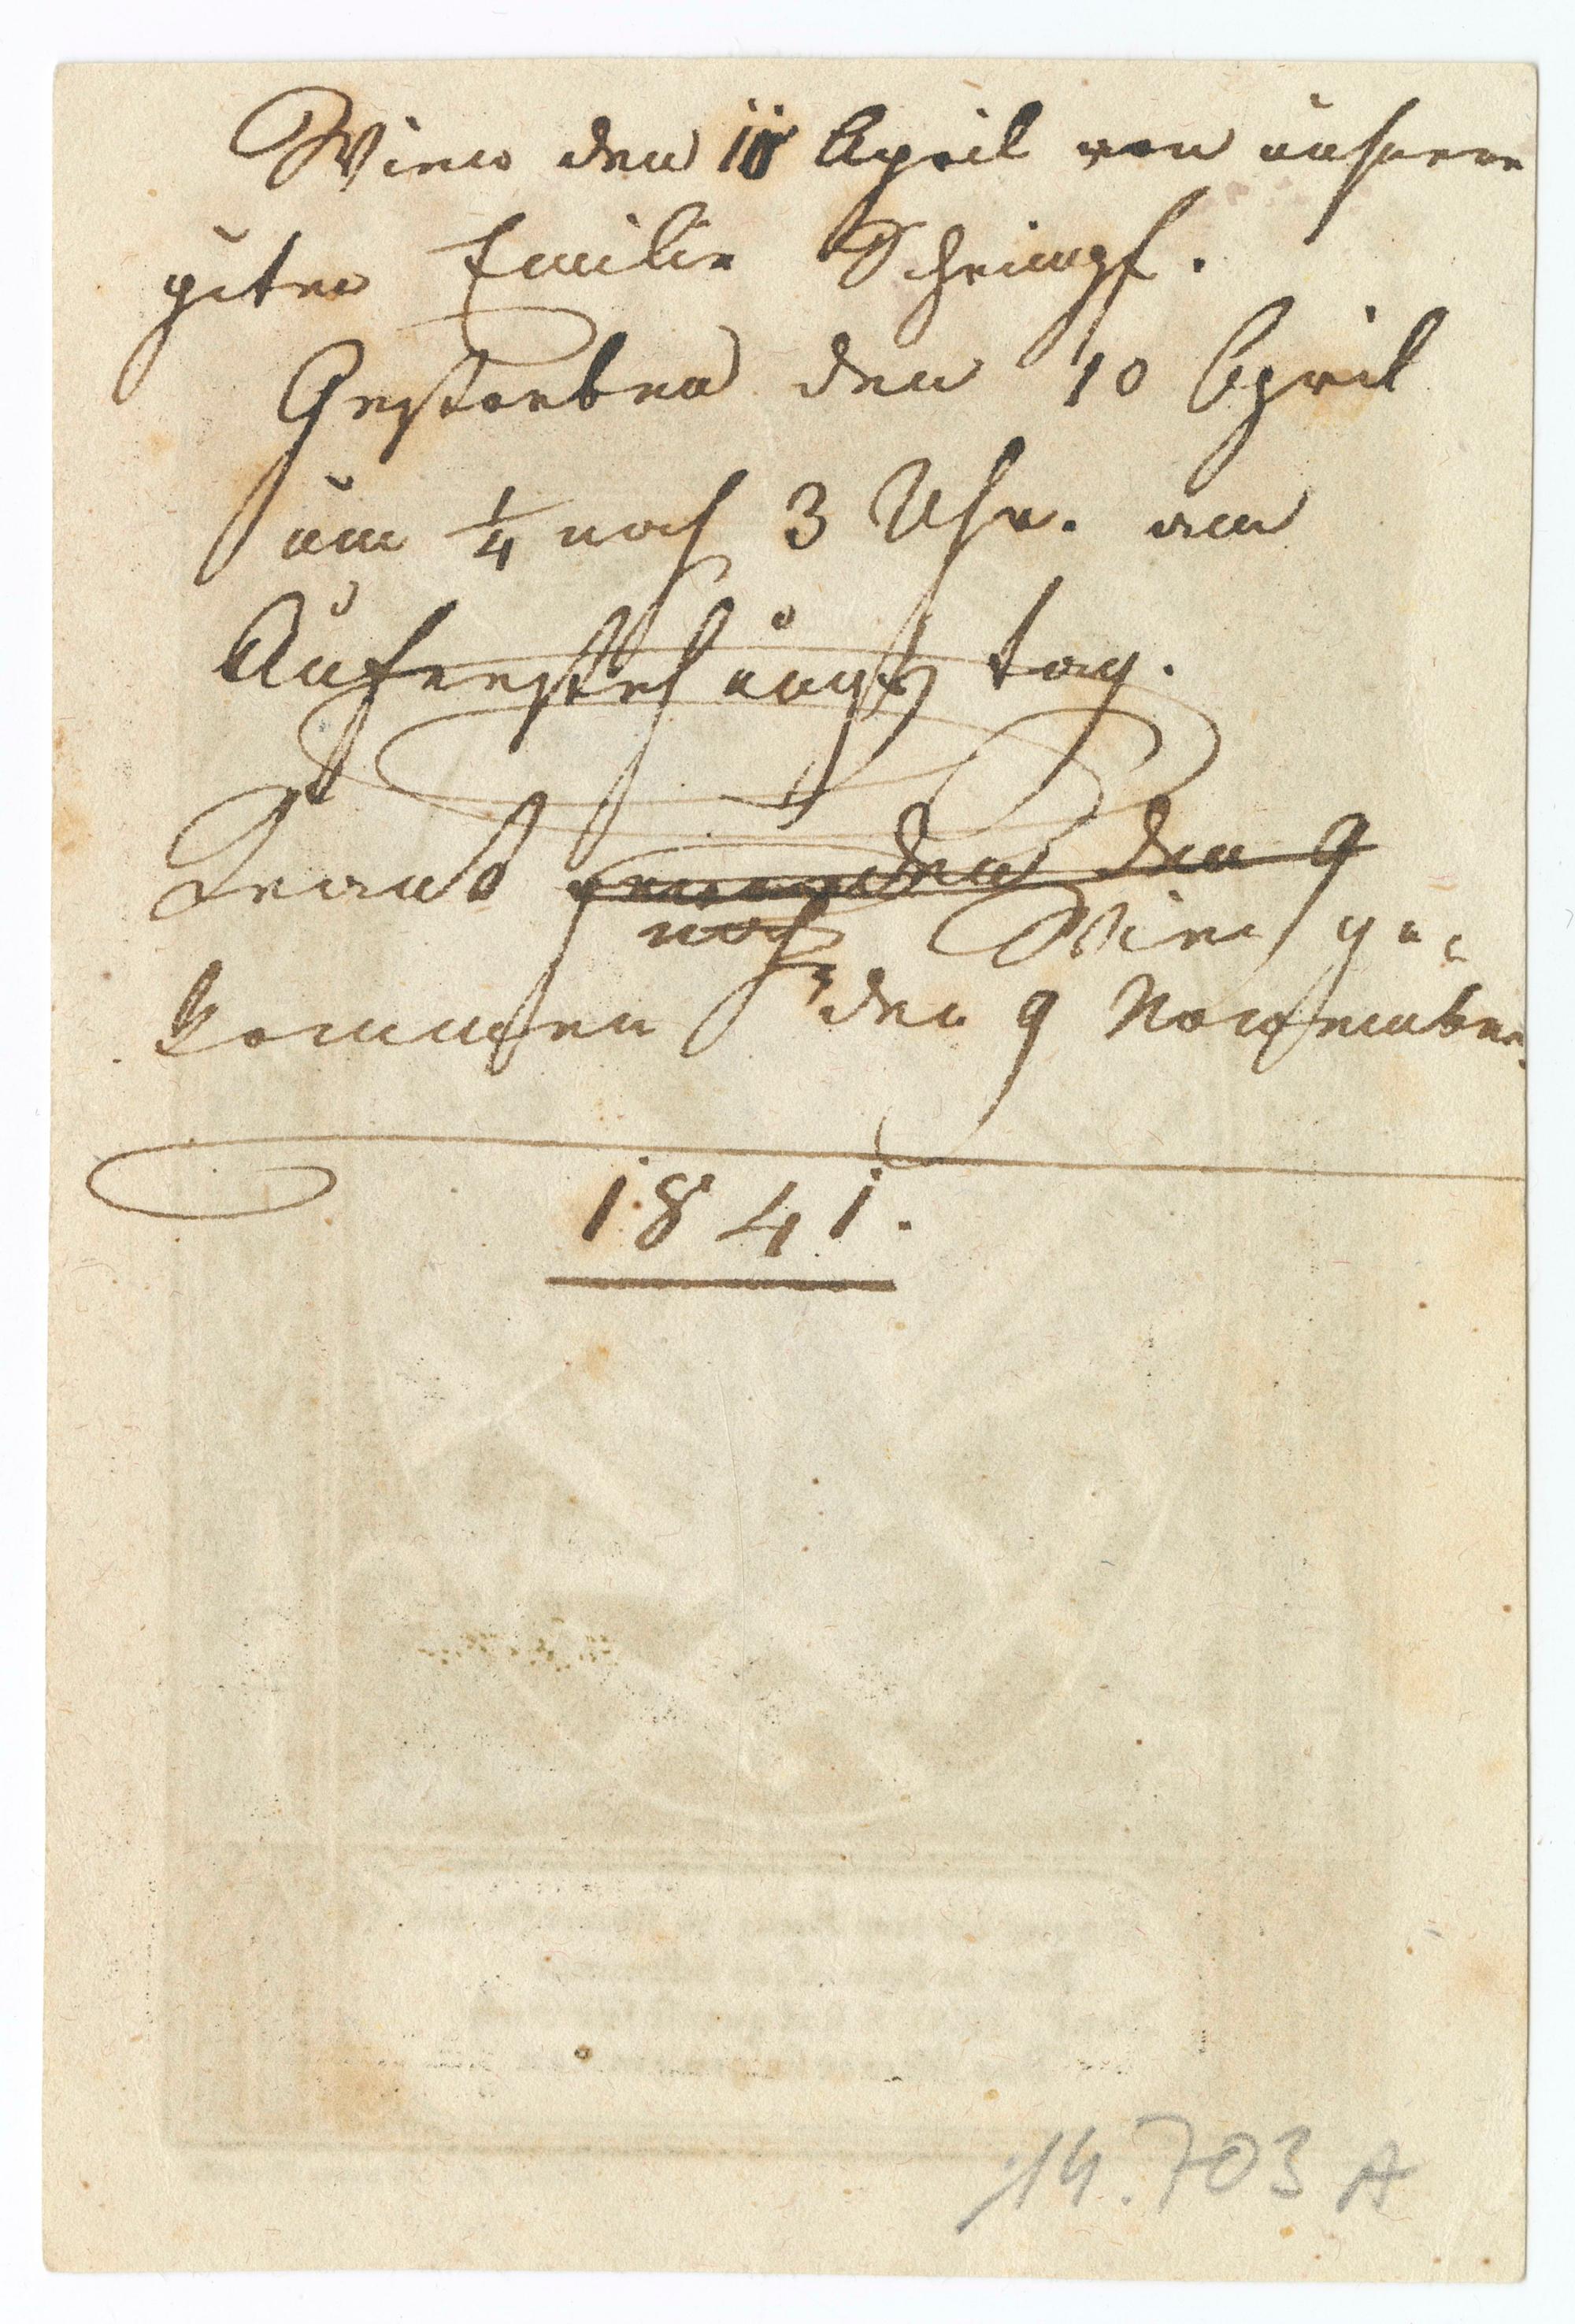 Wien den 10 April von unserer
guten Emilie Schrimpf.
Gestorben den 10 April
um 1/4 nach 3 Uhr. am
Auferstehungs tag.
Krank den 9
nach Wien ge=
kommen den 9 November
1841.
14.703 A